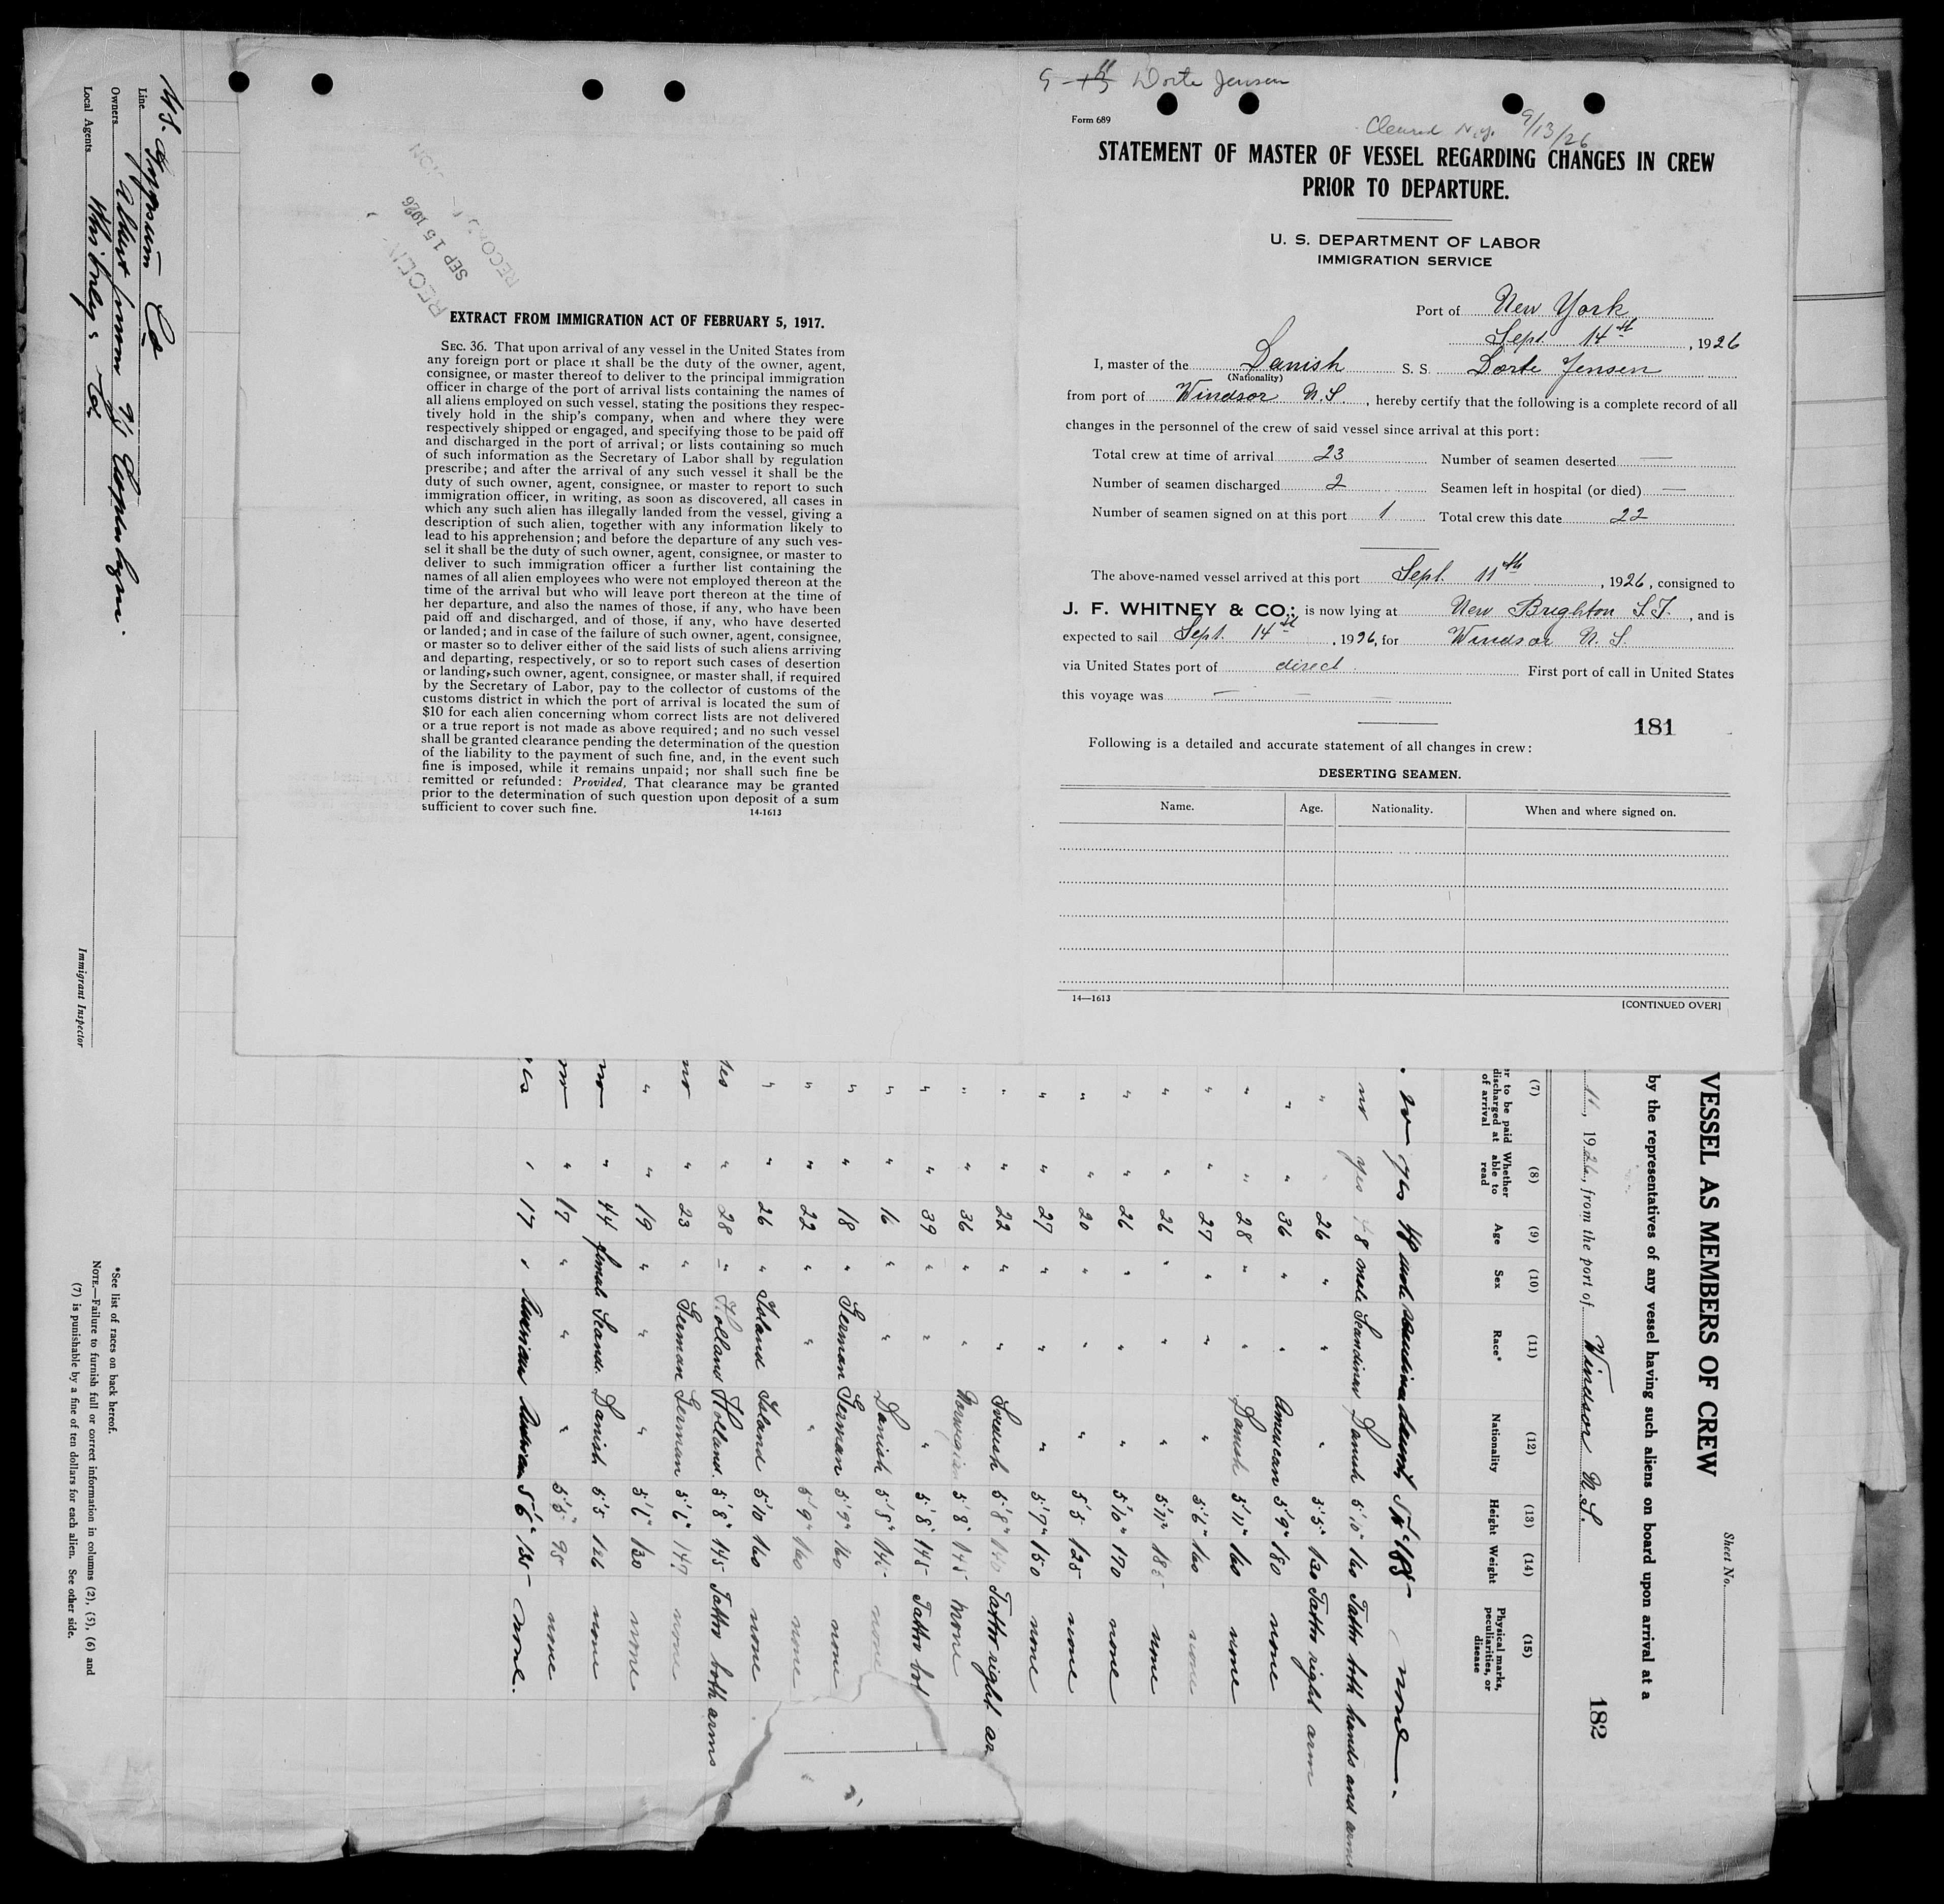 Dorte Jensen
Cleared N.Y. 9/13/26
Form 689
STATEMENT OF MASTER OF VESSEL REGARDING CHANGES IN CREW
PRIOR TO DEPARTURE.
U. S. DEPARTMENT OF LABOR
IMMIGRATION SERVICE
Port of New York
Sept. 14th, 1926
I, master of the Danish S. S. Dorte Jensen
(Nationality)
from port of Windsor N.S., hereby certify that the following is a complete record of all
changes in the personnel of the crew of said vessel since arrival at this port:
Total crew at time of arrival 23 Number of seamen deserted —
Number of seamen discharged 2 Seamen left in hospital (or died) —
Number of seamen signed on at this port 1 Total crew this date 22
The above-named vessel arrived at this port Sept. 11th, 1926, consigned to
J. F. WHITNEY & CO.; is now lying at New Brighton S.I., and is
expected to sail Sept. 14th, 1926, for Windsor N.S.
via United States port of direct First port of call in United States
this voyage was — — —
181
Following is a detailed and accurate statement of all changes in crew:
DESERTING SEAMEN.
Name. Age. Nationality. When and where signed on.
14—1613 [CONTINUED OVER]
SEP 15 1926
EXTRACT FROM IMMIGRATION ACT OF FEBRUARY 5, 1917.
SEC. 36. That upon arrival of any vessel in the United States from
any foreign port or place it shall be the duty of the owner, agent,
consignee, or master thereof to deliver to the principal immigration
officer in charge of the port of arrival lists containing the names of
all aliens employed on such vessel, stating the positions they respec-
tively hold in the ship's company, when and where they were
respectively shipped or engaged, and specifying those to be paid off
and discharged in the port of arrival; or lists containing so much
of such information as the Secretary of Labor shall by regulation
prescribe; and after the arrival of any such vessel it shall be the
duty of such owner, agent, consignee, or master to report to such
immigration officer, in writing, as soon as discovered, all cases in
which any such alien has illegally landed from the vessel, giving a
description of such alien, together with any information likely to
lead to his apprehension; and before the departure of any such ves-
sel it shall be the duty of such owner, agent, consignee, or master to
deliver to such immigration officer a further list containing the
names of all alien employees who were not employed thereon at the
time of the arrival but who will leave port thereon at the time of
her departure, and also the names of those, if any, who have been
paid off and discharged, and of those, if any, who have deserted
or landed; and in case of the failure of such owner, agent, consignee,
or master so to deliver either of the said lists of such aliens arriving
and departing, respectively, or so to report such cases of desertion
or landing, such owner, agent, consignee, or master shall, if required
by the Secretary of Labor, pay to the collector of customs of the
customs district in which the port of arrival is located the sum of
$10 for each alien concerning whom correct lists are not delivered
or a true report is not made as above required; and no such vessel
shall be granted clearance pending the determination of the question
of the liability to the payment of such fine, and, in the event such
fine is imposed, while it remains unpaid; nor shall such fine be
remitted or refunded: Provided, That clearance may be granted
prior to the determination of such question upon deposit of a sum
sufficient to cover such fine.
14-1613
Sheet No.
VESSEL AS MEMBERS OF CREW
by the representatives of any vessel having such aliens on board upon arrival at a
11, 1926, from the port of Windsor N.S.
182
(7) (8) (9) (10) (11) (12) (13) (14) (15)
to be paid discharged at of arrival Whether able to read Age Sex Race* Nationality Height Weight Physical marks, peculiarities, or disease
no yes male none
no yes 8 male Scandinav Danish 5'10" 160 Tattoo both hands and arms
" " 26 " " " 5'5" 130 Tattoo right arm
" " 36 " " American 5'9" 180 none
" " 28 " " Danish 5'11" 160 none
" " 27 " " " 5'6" 160 none
" " 26 " " " 5'11" none
" " 26 " " " 5'10" 170 none
" " 20 " " " 5'5 125 none
" " 27 " " " 5'7" 150 none
" " 22 " " Swedish 5'8" Tattoo right ar
" " 36 " " Norwegian 5'8" 145 none
" " 39 " " " 5'8" 145 Tattoo
" " 16 " " Danish 5'8" none
" " 18 " German German 5'9" 160 none
" " 22 " " " 5'9" 160 none
" " 26 " Island Island 5'10 160 none
yes " 28 " Holland Holland. 5'8" 145 Tattoo both arms
no " 23 " German German 5'6" none
" " 19 " " " 5'6" 130 none
no " 44 female Scand. Danish 5'5 126 none
no " 17 " " " 5'5" 95 none
yes " 17 " 5'6" 135 none.
Line U.S. Gypsum Co
Owners Copenhagen.
Local Agents Whitney & Co.
Immigrant Inspector
*See list of races on back hereof.
NOTE.—Failure to furnish full or correct information in columns (2), (5), (6) and
(7) is punishable by a fine of ten dollars for each alien. See other side.